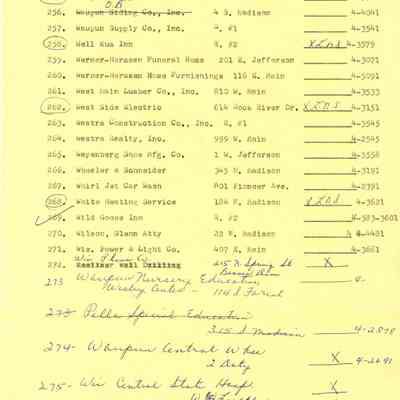 OB
256. Waupun Siding Co., Inc. 4 S. Madison 4-4041
257. Waupun Supply Co., Inc. R. #1 4-3541
258. Well Kum Inn R. #2 4-3579
259. Werner-Harmsen Funeral Home 201 E. Jefferson 4-3071
260. Werner-Harmsen Home Furnishings 116 E. Main 4-5091
261. West Main Lumber Co., Inc. 810 W. Main 4-3533
262. West Side Electric 614 Rock River Dr. 4-3151
263. Westra Construction Co., Inc. R. #1 4-3545
264. Westra Realty, Inc. 999 W. Main 4-2545
265. Weyenberg Shoe Mfg. Co. 1 W. Jefferson 4-3558
266. Wheeler & Schneider 345 N. Madison 4-3191
267. Whirl Jet Car Wash 801 Pioneer Ave. 4-2391
268. White Heating Service 104 F. Madison 4-3621
269. Wild Goose Inn R. #2 4-583-3601
270. Wilson, Glenn Atty 22 N 4-4481
271. Wis. Power & Light Co. 407 E. Main 4-3661
272. Well Drilling 215 N. Spring St X
273 Waupun Nursery Education 4-
Wesley Center - 114 S Forest
273 Pella Special Education
315 S Madison 4-2878
274- Waupun Central Whse
2 Doty X 4-2691
275- Wis Central State Hosp. X